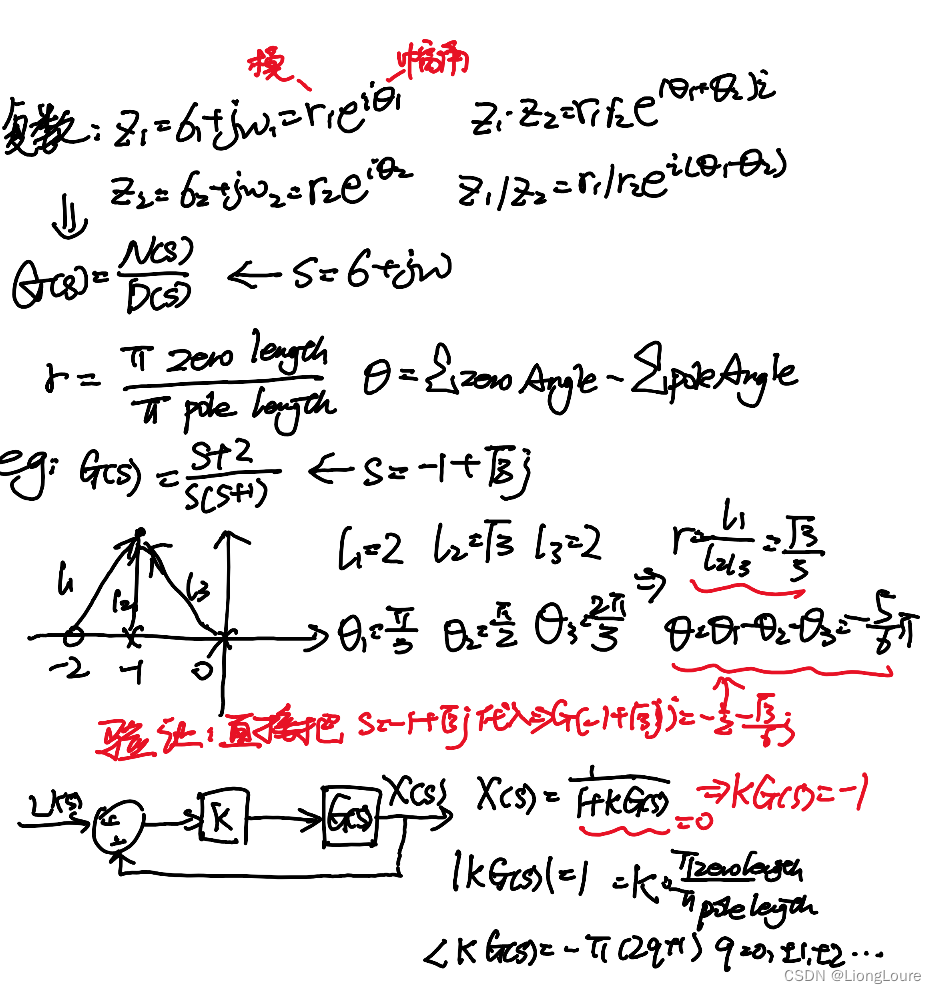 模 幅角
复数: Z₁=σ₁+jω₁=r₁e^{iθ₁} Z₁·Z₂=r₁r₂e^{(θ₁+θ₂)i}
Z₂=σ₂+jω₂=r₂e^{iθ₂} Z₁/Z₂=r₁/r₂e^{i(θ₁-θ₂)}
⇓
G(s)=N(s)/D(s) ← s=σ+jω
r=π zero length/π pole length θ=Σzero Angle-Σpole Angle
eg: G(s)=s+2/s(s+1) ← s=-1+√3j
l₁=2 l₂=√3 l₃=2 ⇒ r=l₁/l₂l₃=√3/3
l₁ l₂ l₃
θ₁=π/3 θ₂=π/2 θ₃=2π/3 θ=θ₁-θ₂-θ₃=-5/6π
-2 -1 0
验证:直接把 s=-1+√3j代入⇒G(-1+√3j)=-1/2-√3/6j
U(s) + - K G(s) X(s) X(s)=1/1+KG(s) =0 ⇒KG(s)=-1
|KG(s)|=1 =K·π zero length/π pole length
∠KG(s)=-π(2q+1) q=0,±1,±2…
CSDN @LiongLoure